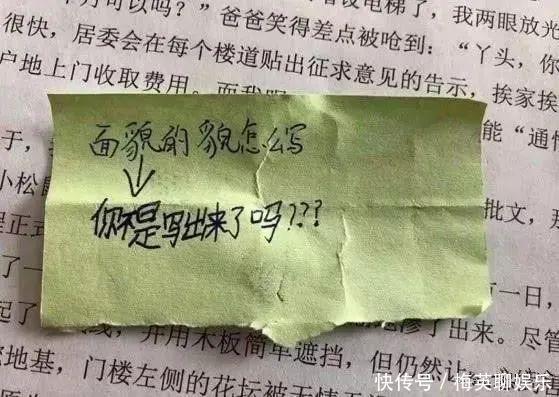 月可以吗？”爸爸笑得差点被呛到：“丫头，你
很快，居委会在每个楼道贴出征求意见的告示，挨家挨
户地上门收取费用。
面貌的貌怎么写
你不是写出来了吗???
能“通
小松
批文，那
程正式
有一日，
了一
起了
并用木板简单遮挡，但仍然让
了出来。尽管
地基，门楼左侧的花坛被
快传号／梅英聊娱乐